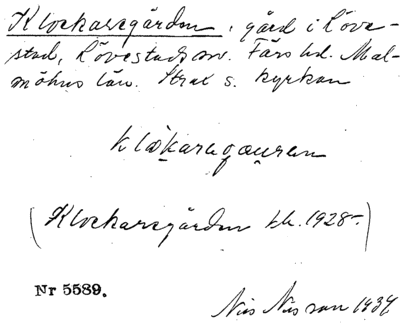 Klockaregården, gård i Löve-
stad, Lövestads sn. Färs hd. Mal-
möhus län. Strax s. kyrkan
klåkaregauren
(Klockaregården kk. 1928-)
Nr 5589.
Nils Nilsson 1934